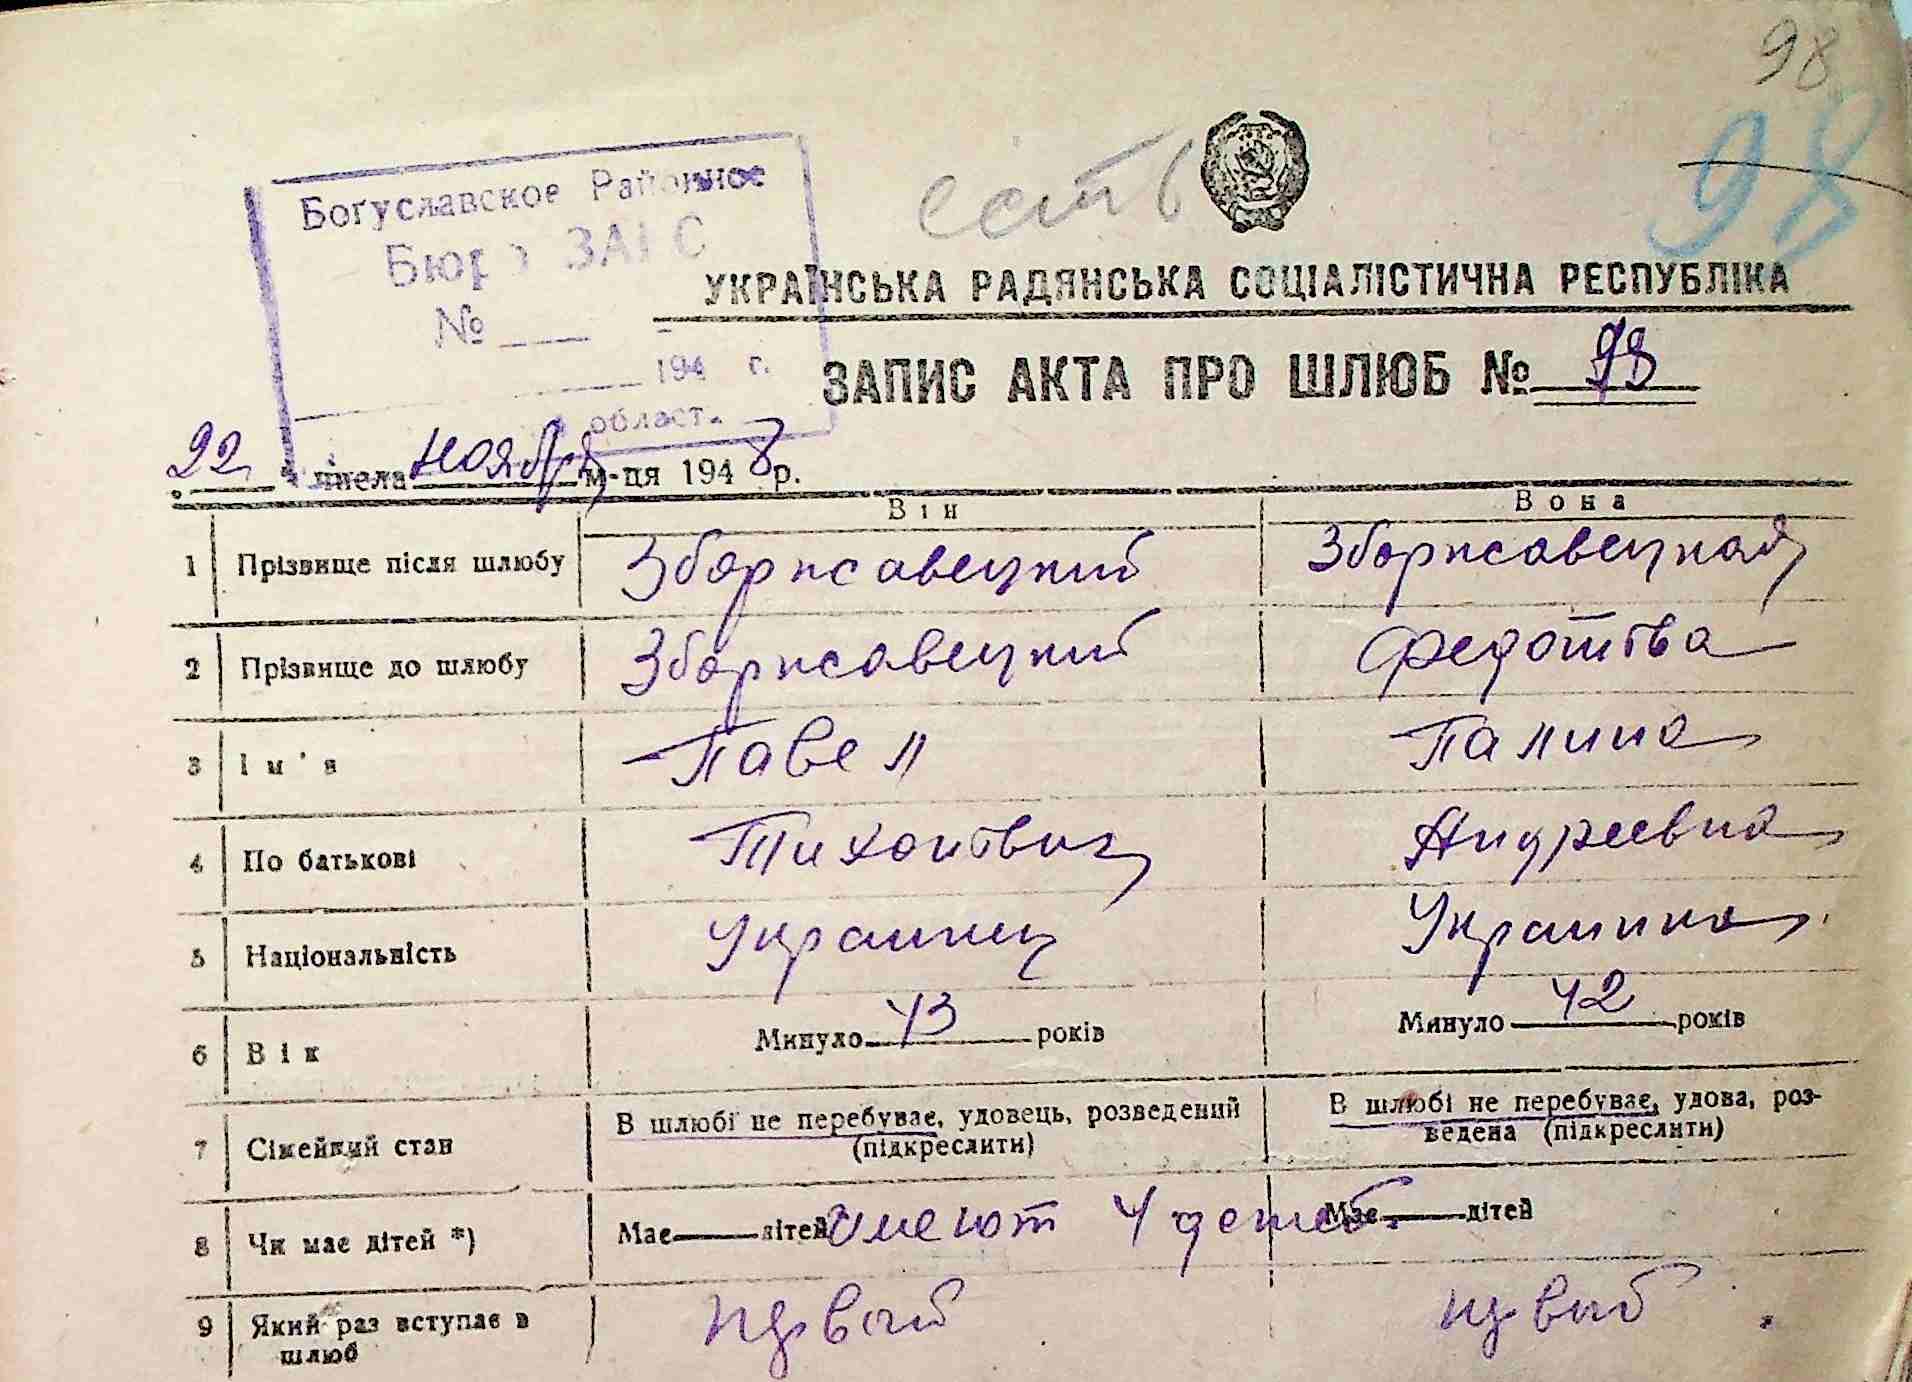 98
98
есть
Богуславское Районное
Бюро ЗАГС
№
194 г.
област.
УКРАЇНСЬКА РАДЯНСЬКА СОЦІАЛІСТИЧНА РЕСПУБЛІКА
ЗАПИС АКТА ПРО ШЛЮБ № 98
22 " числа ноября м-ця 1948 р.
Він Вона
1 Прізвище після шлюбу Зборисавецкий Зборисавецкая
2 Прізвище до шлюбу Зборисавецкий Федотова
3 Ім'я Павел Палина
4 По батькові Тихонович Андреевна
5 Національність Украинец Украинка
6 Вік Минуло 43 років Минуло 42 років
7 Сімейний стан В шлюбі не перебуває, удовець, розведений (підкреслити) В шлюбі не перебуває, удова, роз-
ведена (підкреслити)
8 Чи має дітей *) Має дітей Имеют 4 детей. Має дітей
9 Який раз вступає в шлюб первый первый